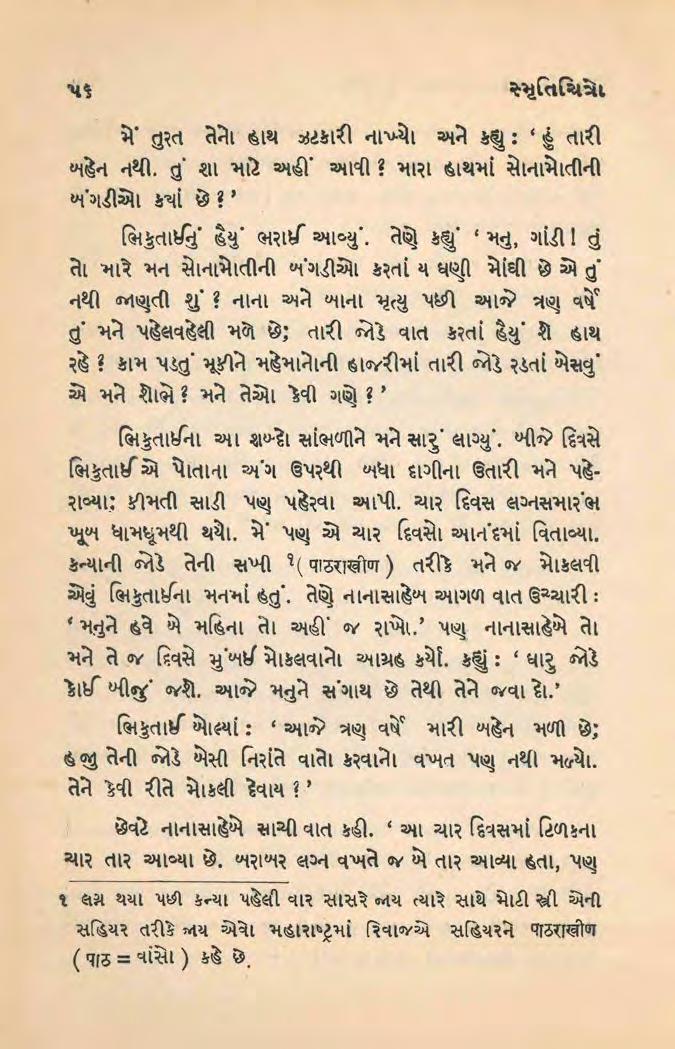 ૫૬ સ્મૃતિચિત્રો
મેં તુરત તેનો હાથ ઝટકારી નાખ્યો અને કહ્યું : ‘ હું તારી
બહેન નથી. તું શા માટે અહીં આવી ? મારા હાથમાં સોનામોતીની
બંગડીઓ ક્યાં છે ? ’
ભિકુતાઈનું હૈયું ભરાઈ આવ્યું. તેણે કહ્યું ‘ મનુ, ગાંડી ! તું
તો મારે મન સોનામોતીની બંગડીઓ કરતાં ય ઘણી મોંઘી છે એ તું
નથી જાણતી શું ? નાના અને બાના મૃત્યુ પછી આજે ત્રણ વર્ષે
તું મને પહેલવહેલી મળે છે; તારી જોડે વાત કરતાં હૈયું શે હાથ
રહે ? કામ પડતું મૂકીને મહેમાનોની હાજરીમાં તારી જોડે રડતાં બેસવું
એ મને શોભે ? મને તેઓ કેવી ગણે ? ’
ભિકુતાઈના આ શબ્દો સાંભળીને મને સારું લાગ્યું. બીજે દિવસે
ભિકુતાઈએ પોતાના અંગ ઉપરથી બધા દાગીના ઉતારી મને પહે-
રાવ્યા; કીમતી સાડી પણ પહેરવા આપી. ચાર દિવસ લગ્નસમારંભ
ખૂબ ધામધૂમથી થયો. મેં પણ એ ચાર દિવસો આનંદમાં વિતાવ્યા.
કન્યાની જોડે તેની સખી ૧( पाठराखीण ) તરીકે મને જ મોકલવી
એવું ભિકુતાઈના મનમાં હતું. તેણે નાનાસાહેબ આગળ વાત ઉચ્ચારી :
‘ મનુને હવે બે મહિના તો અહીં જ રાખો.’ પણ નાનાસાહેબે તો
મને તે જ દિવસે મુંબઈ મોકલવાનો આગ્રહ કર્યો. કહ્યું : ‘ ઘારુ જોડે
કોઈ બીજું જશે. આજે મનુને સંગાથ છે તેથી તેને જવા દો.’
ભિકુતાઈ બોલ્યાં : ‘ આજે ત્રણ વર્ષે મારી બહેન મળી છે;
હજુ તેની જોડે બેસી નિરાંતે વાતો કરવાનો વખત પણ નથી મળ્યો.
તેને કેવી રીતે મોકલી દેવાય ? ’
છેવટે નાનાસાહેબે સાચી વાત કહી. ‘ આ ચાર દિવસમાં ટિળકના
ચાર તાર આવ્યા છે. બરાબર લગ્ન વખતે જ બે તાર આવ્યા હતા, પણ
૧ લગ્ન થયા પછી કન્યા પહેલી વાર સાસરે જાય ત્યારે સાથે મોટી સ્ત્રી એની
સહિયર તરીકે જાય એવો મહારાષ્ટ્રમાં રિવાજએ સહિયરને पाठराखीण
( पाठ = વાંસો ) કહે છે.